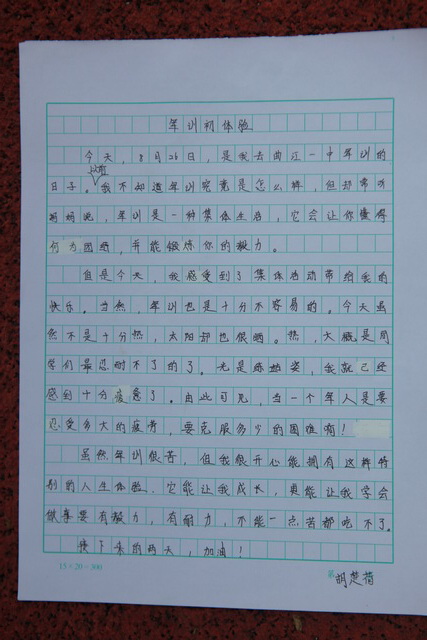 军训初体验
今天，8月26日，是我去曲江一中军训的
以前
日子。我不知道军训究竟是怎么样，但却常听
妈妈说，军训是一种集体生活，它会让你懂得
何为困难，并能锻炼你的毅力。
但是今天，我感受到了集体活动带给我的
快乐。当然，军训也是十分不容易的。今天虽
然不是十分热，太阳却也很晒。热，大概是同
学们最忍耐不了的了。光是练站姿，我就已经
感到十分疲惫了。由此可见，当一个军人是要
忍受多大的疲劳，要克服多少的困难啊！
虽然军训很苦，但我很开心能拥有这样特
别的人生体验。它能让我成长，更能让我学会
做事要有毅力，有耐力，不能一点苦都吃不了。
接下来的两天，加油！
15×20=300
第
胡楚